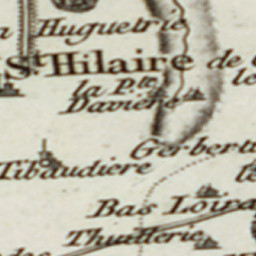 Huguetrie
St. Hilaire de
la Pte.
Davière
Gerbert
Tibaudiere
Bas Loira
Thuillerie